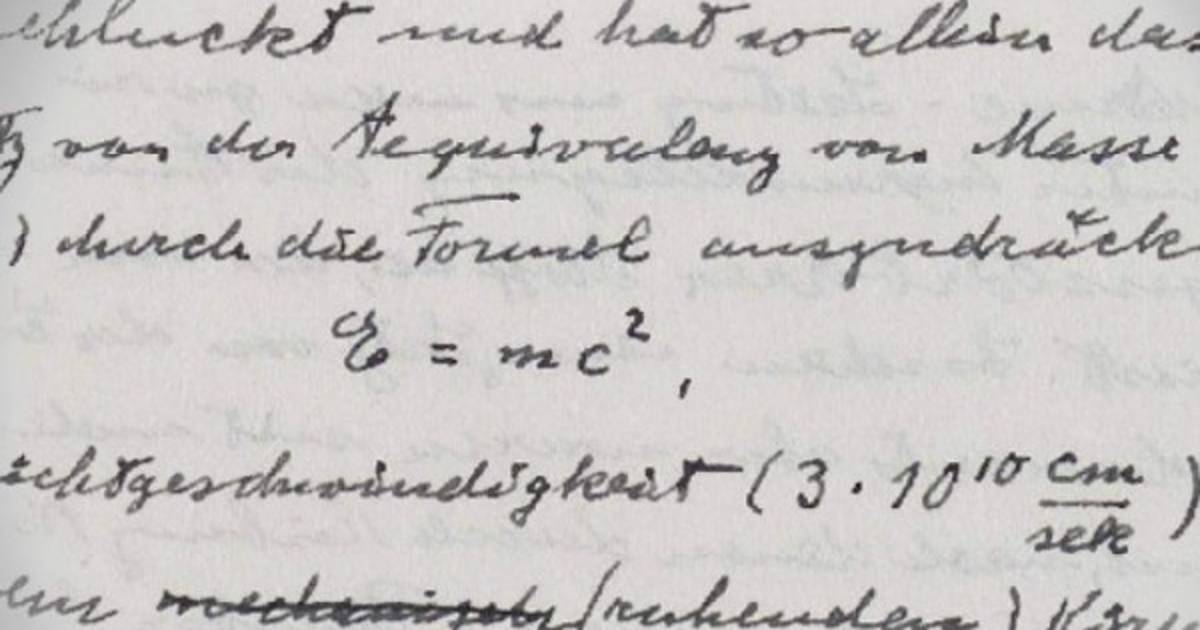 chluckt und hat so allein das
tz von der Aequivalenz von Masse
) durch die Formel auszudrück
E = mc²,
ichtgeschwindigkeit (3 . 10¹⁰ cm/sek)
em mechanisch (ruhenden) Körp